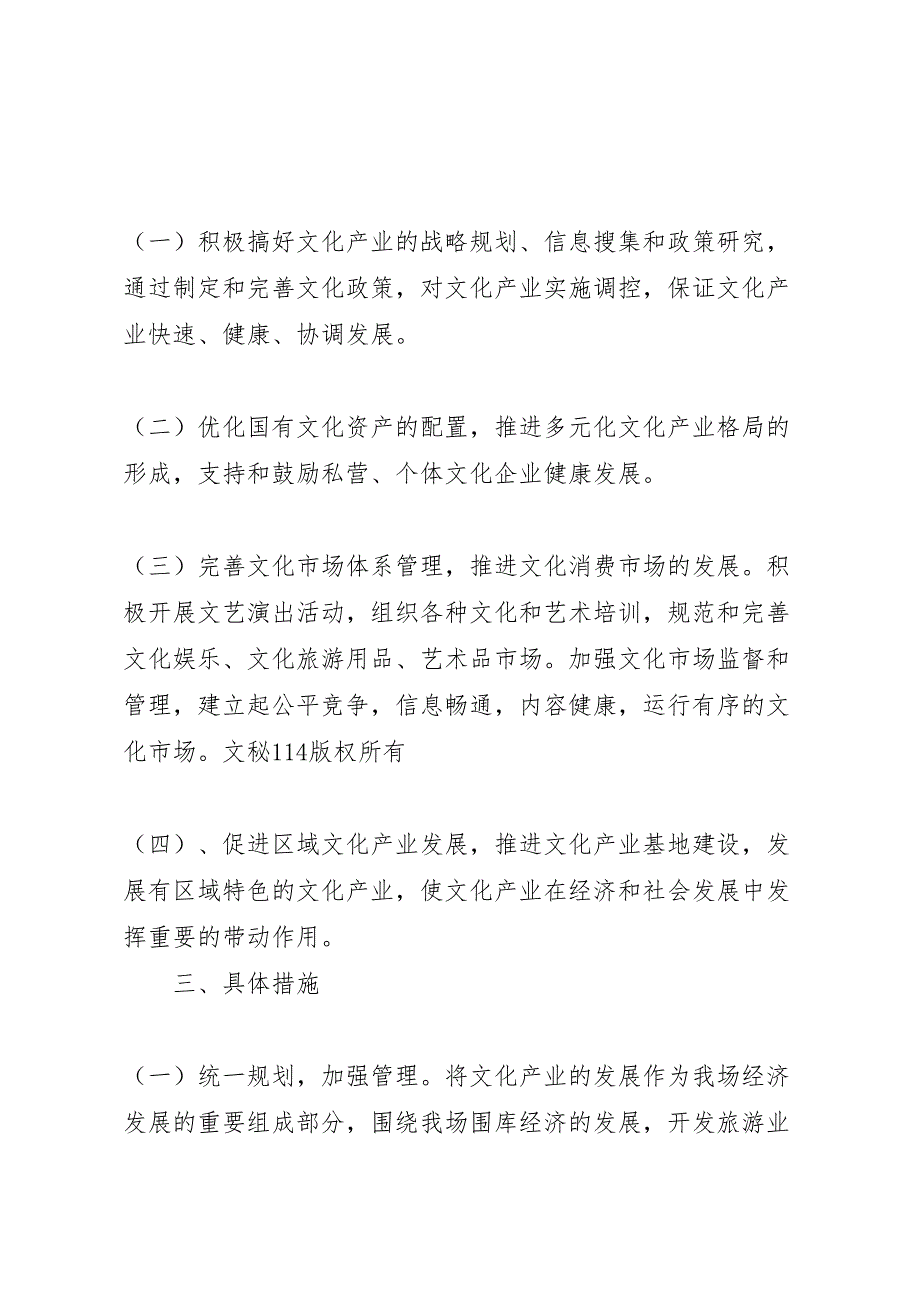 （一）积极搞好文化产业的战略规划、信息搜集和政策研究，
通过制定和完善文化政策，对文化产业实施调控，保证文化产
业快速、健康、协调发展。
（二）优化国有文化资产的配置，推进多元化文化产业格局的
形成，支持和鼓励私营、个体文化企业健康发展。
（三）完善文化市场体系管理，推进文化消费市场的发展。积
极开展文艺演出活动，组织各种文化和艺术培训，规范和完善
文化娱乐、文化旅游用品、艺术品市场。加强文化市场监督和
管理，建立起公平竞争，信息畅通，内容健康，运行有序的文
化市场。文秘114版权所有
（四）、促进区域文化产业发展，推进文化产业基地建设，发
展有区域特色的文化产业，使文化产业在经济和社会发展中发
挥重要的带动作用。
三、具体措施
（一）统一规划，加强管理。将文化产业的发展作为我场经济
发展的重要组成部分，围绕我场围库经济的发展，开发旅游业